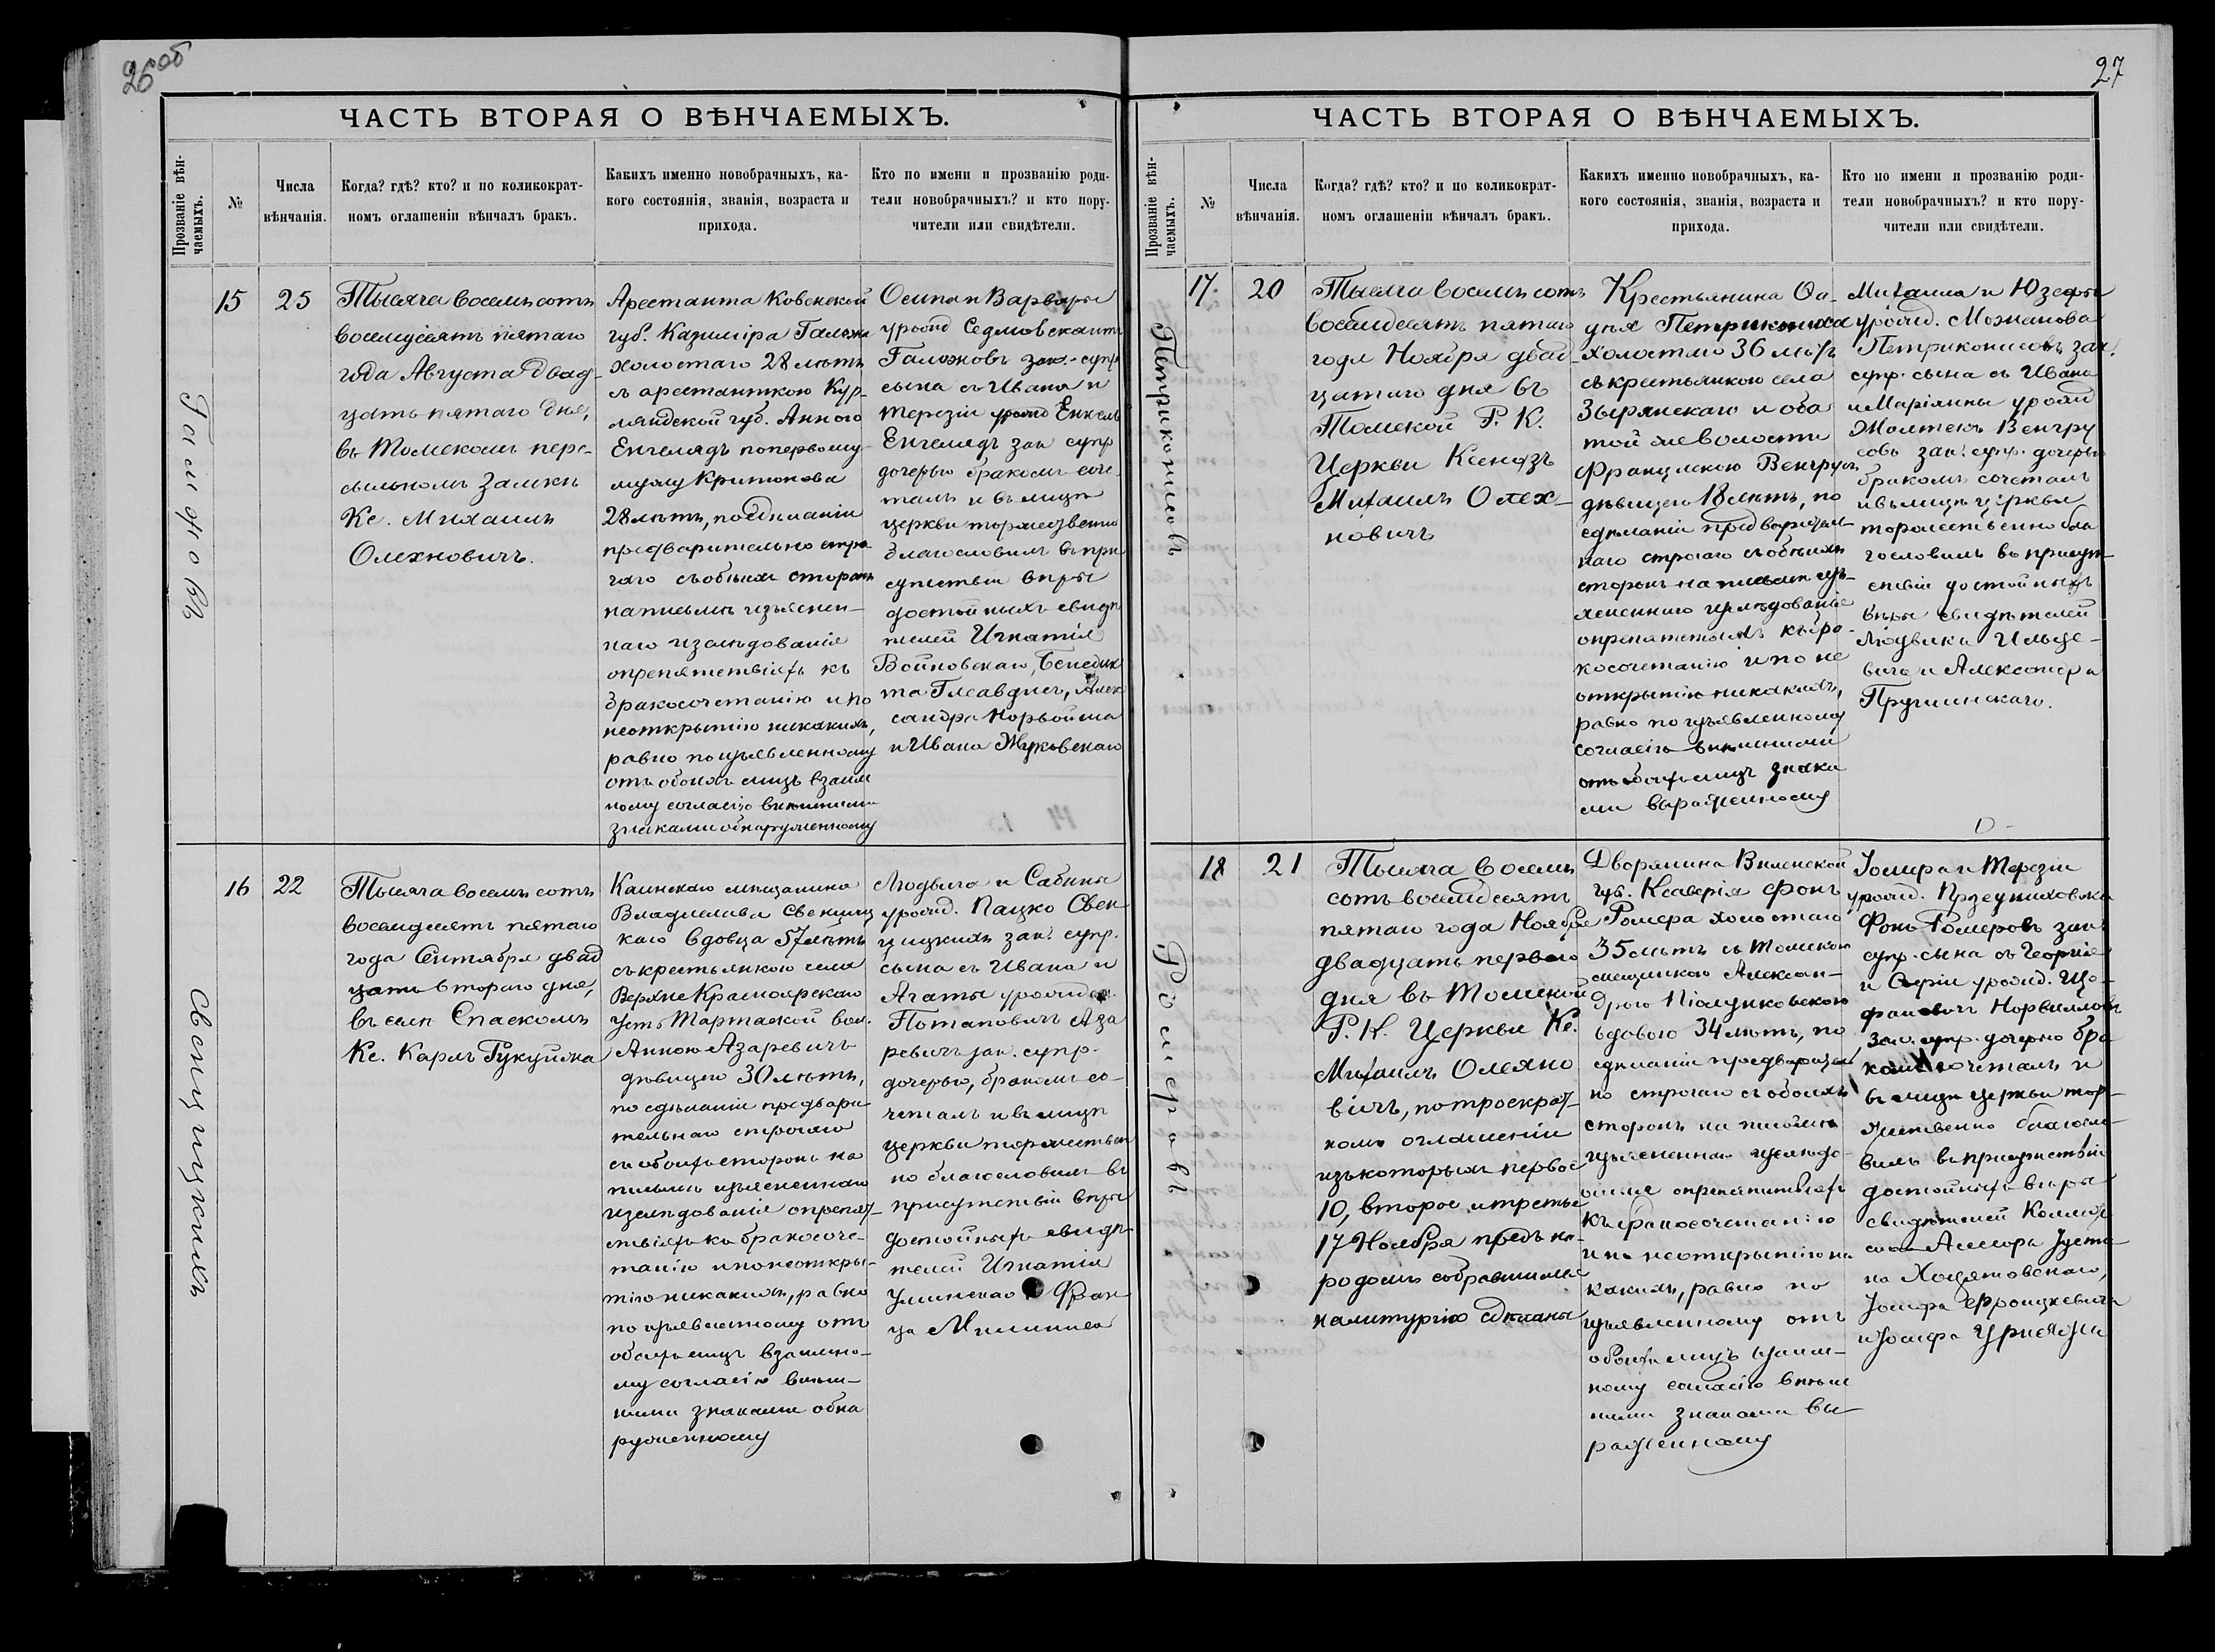 26об
ЧАСТЬ ВТОРАЯ О ВѢНЧАЕМЫХЪ.
Прозваніе вѣн-
чаемыхъ.
№
Числа
вѣнчанія.
Когда? гдѣ? кто? и по коликократ-
номъ оглашеніи вѣнчалъ бракъ.
Какихъ именно новобрачныхъ, ка-
кого состоянія, званія, возраста и
прихода.
Кто по имени и прозванію роди-
тели новобрачныхъ? и кто пору-
чители или свидѣтели.
15
25
Тысяча восемьсотъ
восемдесятъ пятаго
года Августа двад-
цать пятаго дня,
въ Томскомъ пере-
сыльномъ замкѣ
Кс. Михаилъ
Олехновичъ.
Арестанта Ковенской
губ. Казиміра
холостаго 28 лѣтъ
съ арестанткою Кур-
ляндской губ. Анною
Енгелядъ по первому
мужу Критонова
28 лѣтъ, по сдѣланіи
предварительно стро-
гаго съ обѣихъ сторонъ
на письмѣ изъяснен-
наго изслѣдованія
о препятствіяхъ къ
бракосочетанію и по
неоткрытію никакихъ,
равно по изъявленному
отъ обоихъ лицъ взаим
ному согласію внѣшними
знаками обнаруженному
Осипа и Варвары
урожд
зак. супр
сына съ Ивана и
Терезіи урожд
Енгелядъ зак супр
дочерью бракомъ соче-
талъ и въ лицѣ
церкви торжественно
благословилъ въ при
сутствіи вѣры
достойныхъ свидѣ
телей Игнатія
Войновскаго, Бенедик
та Алек
сандра Норвойша
и Ивана Жуковскаго
16
22
Тысяча восемьсотъ
восемдесятъ пятаго
года Сентября двад
цать втораго дня,
въ селѣ Спаскомъ
Кс. Карлъ
Каинскаго мѣщанина
Владислава Свенциц
каго вдовца 57 лѣтъ
съ крестьянкою села
Верхне Красноярскаго
Усть Тартаской вол.
Анною Азаревичъ
дѣвицею 30 лѣтъ,
по сдѣланіи предвари
тельнаго строгаго
съ обоихъ сторонъ на
письмѣ изъясненнаго
изслѣдованія о препят-
ствіяхъ къ бракосоче-
танію и по неоткры-
тію никакихъ, равно
по изъявленному отъ
обоихъ лицъ взаимно-
му согласію внѣш-
ними знаками обна
руженному
Людвига и Сабины
урожд. Пацко Свен-
цицкихъ зак. супр.
сына съ Ивана и
Агаты урожден.
Потаповичъ Аза
ревичъ зак. супр.
дочерью, бракомъ со-
четалъ и въ лицѣ
церкви торжествен
но благословилъ въ
присутствіи вѣры
достойныхъ свидѣ-
телей Игнатія
Фран
ца
Свенцицкихъ
27
ЧАСТЬ ВТОРАЯ О ВѢНЧАЕМЫХЪ.
Прозваніе вѣн-
чаемыхъ.
№
Числа
вѣнчанія.
Когда? гдѣ? кто? и по коликократ-
номъ оглашеніи вѣнчалъ бракъ.
Какихъ именно новобрачныхъ, ка-
кого состоянія, званія, возраста и
прихода.
Кто по имени и прозванію роди-
тели новобрачныхъ? и кто пору-
чители или свидѣтели.
Петриконисовъ
17.
20
Тысяча восемьсотъ
восемдесятъ пятаго
года Ноября двад-
цатаго дня въ
Томской Р. К.
Церкви Ксендзъ
Михаилъ Олех-
новичъ
Крестьянина
Петрикониса
холостаго 36 лѣтъ
съ крестьянкою села
Зырянскаго и оба
той же волости
Францискою Венгрусъ
дѣвицею 18 лѣтъ, по
сдѣланіи предварител-
наго строгаго съ обѣихъ
сторонъ на письмѣ изъ-
ясненнаго изслѣдованіе
о препятствіяхъ къ бра-
косочетанію и по не
открытію никакихъ,
равно по изъявленному
согласію внѣшними
отъ обоихъ лицъ знака
ми выраженному
Михаила и Юзефы
урожд. Можанова
Петриконисовъ зак.
супр. сына съ Ивана
и Маріянны урожд
Венгру
совъ зак. супр. дочерью
бракомъ сочеталъ
и въ лицѣ церкви
торжественно бла
гословилъ въ присут-
ствіи достойныхъ
вѣры свидѣтелей
Людвика Ильце-
вича и Александра
Пружинскаго.
Ромеровъ
18
21
Тысяча восемь
сотъ восемдесятъ
пятаго года Ноября
двадцать перваго
дня въ Томской
Р. К. Церкви Кс.
Михаилъ Олехно
вичъ, по троекрат-
номъ оглашеніи
изъ которыхъ первое
10, второе и третье
17 Ноября предъ на-
родомъ собравшимся
на литургію сдѣланы
Дворянина Виленской
губ. Ксаверія фонъ
Ромера холостаго
35 лѣтъ съ Томскою
мѣщанкою Алексан-
дрою
вдовою 34 лѣтъ, по
сдѣланіи предварител
но строгаго съ обоихъ
сторонъ на письмѣ
изъясненнаго изслѣдо-
ванія о препятствіяхъ
къ бракосочетанію
и по неоткрытію ни
какихъ, равно по
изъявленному отъ
обоихъ лицъ взаим-
ному согласію внѣш
ними знаками вы
раженному
Іосифа и Терезіи
урожд.
Фонъ Ромеровъ зак.
супр. сына съ Георгія
и урожд.
Норвиловъ
зак. супр. дочерью бра
комъ сочеталъ и
въ лицѣ церкви тор-
жественно благосло-
вилъ въ присутствіи
достойныхъ вѣры
свидѣтелей Коллеж
скаго Асесора Густа
ва
Іосифа Фронцкевича
и Іосифа